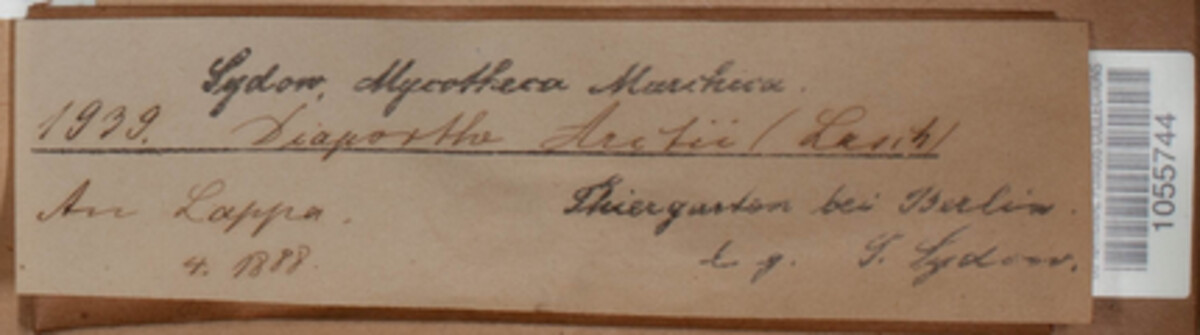 Sydow, Mycotheca Marchica.
1939. Diaporthe Arctii (Lasch)
An Lappa.
4. 1888.
Thiergarten bei Berlin.
l g. P. Sydow.
1055744